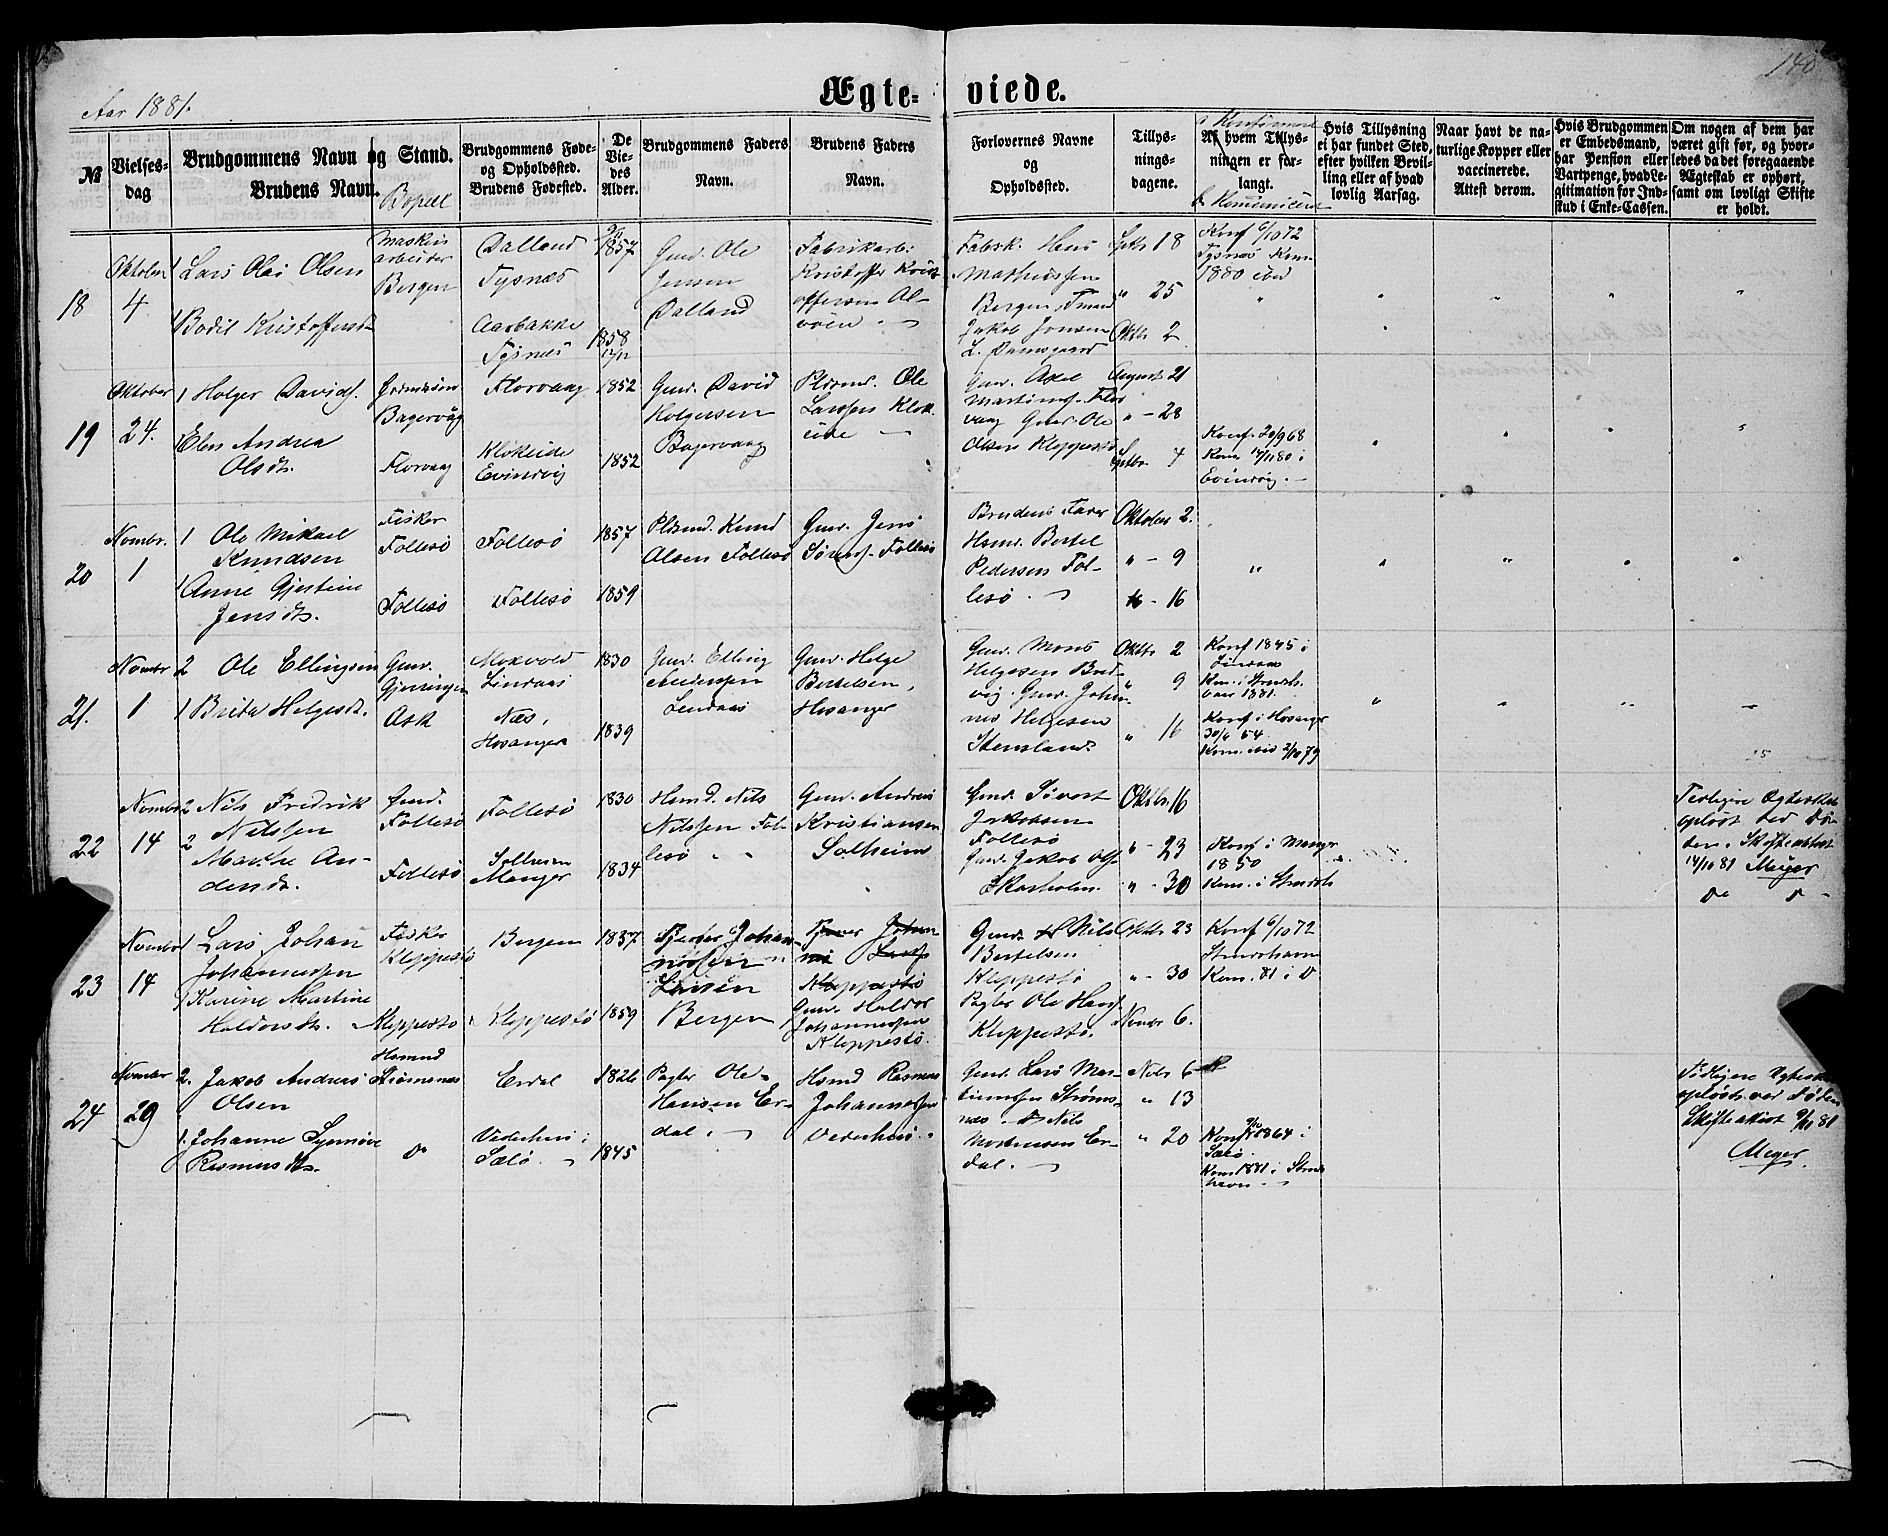 Aar 1881.
Ægteviede.
140
№
Vielsesdag
Brudgommens Navn og Stand.
Brudens Navn.
Bopæl
Brudgommens Føde- og Opholdssted.
Brudens Fødested.
De Viedes Alder.
Brudgommens Faders Navn.
Brudens Faders Navn.
Forlovernes Navne og Opholdssted.
Tillysningsdagene.
Af hvem Tillysningen er forlangt.
Hvis Tillysning ei har fundet Sted, efter hvilken Bevilling eller af hvad lovlig Aarsag.
Naar havt de naturlige Kopper eller vaccinerede. Attest derom.
Hvis Brudgommen er Embedsmand, har Pension eller Vartpenge, hvad Legitimation for Indskud i Enke-Cassen.
Om nogen af dem har været gift før, og hvorledes da det foregaaende Ægteskab er ophørt, samt om lovligt Skifte er holdt.
18
Oktober 4.
1 Lars Olai Olsen
1 Bodil Kristoffersdr
Maskinarbeider
Bergen
Dalland
Tysnæs
Aarbakke
Tysnæs
1857
1858
Gmd. Ole
Jensen
Dalland
Fabrikarb.
Kristoffer Krist-
offersen Al-
vøen
Fabrk. Hans
Mathiassen
Bergen
Jakob Jonsen
L. Damsgaard
Sptb 18
" 25
Oktb 2
Konf 6/10 72
Tysnæs Kom.
1880 ibd
19
Oktober 24.
1 Holger Davids.
Elen Andrea
Olsdr.
Bagervåg
Florvaag
Florvaag
Klokeide
Evindvig
1852
1852
Gmd. David
Holgersen
Bagervaag
Pldsmd. Ole
Larssen Klok-
eide
Gmd. Axel
Martins. Flor-
vaag Gmd. Ole
Olsen Kleppestø
August 21
" - 28
Sptbr. 4
Konf. 20/9 68
Kom 14/11 80 i
Evindvig.
20
Novmbr. 1
1 Ole Mikael
Knudsen
1 Anne Gjertine
Jensdtr.
Fisker
Follesø
Follesø
Follesø
Follesø
1857
1859
Pldsmd. Knud
Olsen Follesø
Gmd. Jens
Sørens. Follesø
Brudens Fader
Hsmd. Bertel
Pedersen Fol-
lesø
Oktober 2.
" - 9
" - 16
21.
Novmbr 1
2 Ole Ellingsen
1 Brita Helgesdr.
Gmd.
Ask
Lindaas
Næs,
Hosanger
1830
1839
Gmd. Elling
Andersen
Lindaas
Gmd. Helge
Bertelsen,
Hosanger
Gmd. Mons
Helgesen Bred-
vig. Gmd. Johan-
nes Helgesen
Stensland.
Oktb 2
" 9
" 16
Konf 1845 i
Lindaas
Kom. i Strndh.
1881.
Konf i Hosangr
30/6 54
Kom. ibid 2/10 79
22
Novmbr 14
2 Nils Fredrik
Nilssen
2 Marthe An-
dersdr.
Gmd.
Follesø
Follesø
Follesø
Solheim
Manger
1830
1834
Hsmd. Nils
Nilssen Fol-
lesø
Gmd. Anders
Kristiansen
Solheim
Gmd. Sivert
Jakobsen
Follesø
Gmd. Jakob Ols.
Skarholm.
Oktbr. 16
" - 23
" - 30
Konf i Mangr
1850
Kom. i Strndh
Tidligere Ægteskab
opløst ved Dø-
den. Skifteattest
14/10 81 Meyer
Do D
23
Novmbr 14
1 Lars Johan
Johannessen
1 Karine Martine
Haldorsdr.
Fisker
Kleppestø
Kleppestø
Bergen
Kleppestø
1857
1859
Tjener Johan-
nes
Bergen
Tjener Johan-
nes Lars.
Kleppestø
Gmd. Haldor
Johannessen
Kleppestø.
Gmd. Nils
Bertelsen
Kleppestø
Pagter Ole Hans.
Kleppestø.
Oktb. 23
" - 30
Novbr 6.
Konf 6/10 72
Strndshavn
Kom. 81 i D
24
Novmbr 29
2. Jakob Andreas
Olsen
1. Johanne Synnøve
Rasmusdtr.
Husmd
Strømsnes
Do
Erdal
Vederhus i
Sælø.
1826
1845
Pagter Ole
Hansen Er-
dal.
Hsmd Rasmus
Johannessen
Vederhus.
Gmd. Lars Mar-
tinussen Strøms-
næs. Do Nils
Mortensen Er-
dal.
Nvbr 6
" 13
" 20
Konf 1864 i
Sælø.
Kom 1881 i Strnds-
havn
Tidligere Ægtesk.
opløst ved Døden
Skifteattest 9/11 81
Meyer.